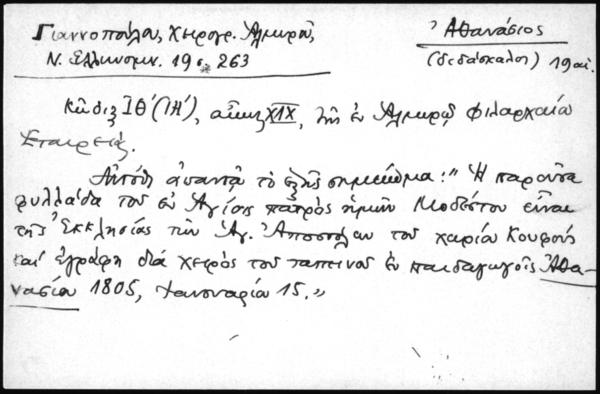 Γιαννοπούλου, Χειρογρ. Αλμυροῦ,
Ν. Ελληνομν. 19, 263
Ἀθανάσιος
(διδάσκαλος) 19 αἰ.
Κῶδιξ ΙΘ' (ΙΗ'), αἰῶνος XIX, τῆς ἐν Αλμυρῷ Φιλαρχαίου
Ἑταιρείας.
Αὐτόθι ἀπαντᾷ τὸ ἑξῆς σημείωμα: "Ἡ παροῦσα
φυλλάδα τοῦ ἐν Ἁγίοις πατρὸς ἡμῶν Μοδέστου εἶναι
τῆς Ἐκκλησίας τῶν Ἁγ. Ἀποστόλων τοῦ χωρίου Κουφούς
καὶ ἐγράφη διὰ χειρὸς τοῦ ταπεινοῦ ἐν παιδαγωγοῖς Ἀθα-
νασίου 1805, Ἰανουαρίου 15."